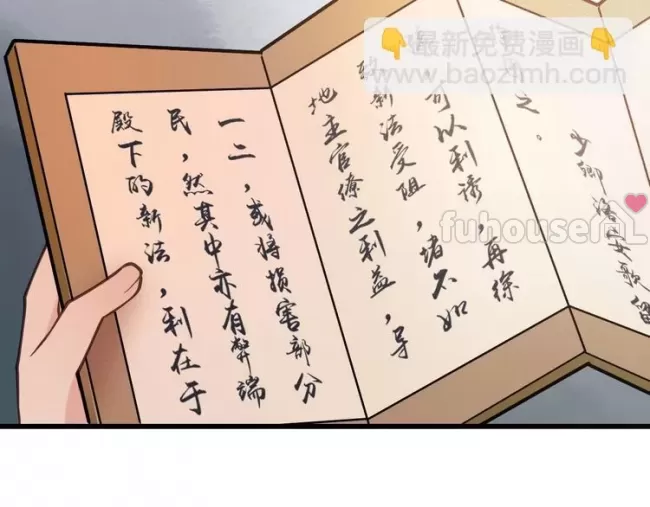 最新免费漫画
www.baozimh.com
殿下的新法，利在于
民，然其中亦有弊端
一二，或将损害部分
地主官僚之利益，导
致新法受阻，堵不如
可以利诱，再徐
之。
少卿洛安歌留
fuhouse